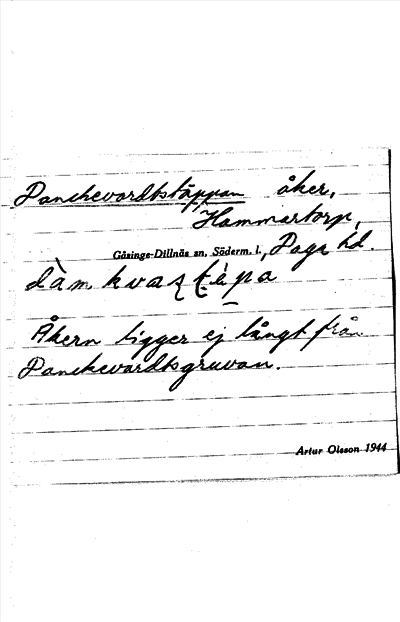 Danckevardtstäppan åker,
Hammartorp,
Gåsinge-Dillnäs sn, Söderm. l., Daga hd.
Åkern ligger ej långt från
Danckevardtsgruvan.
Artur Olsson 1944